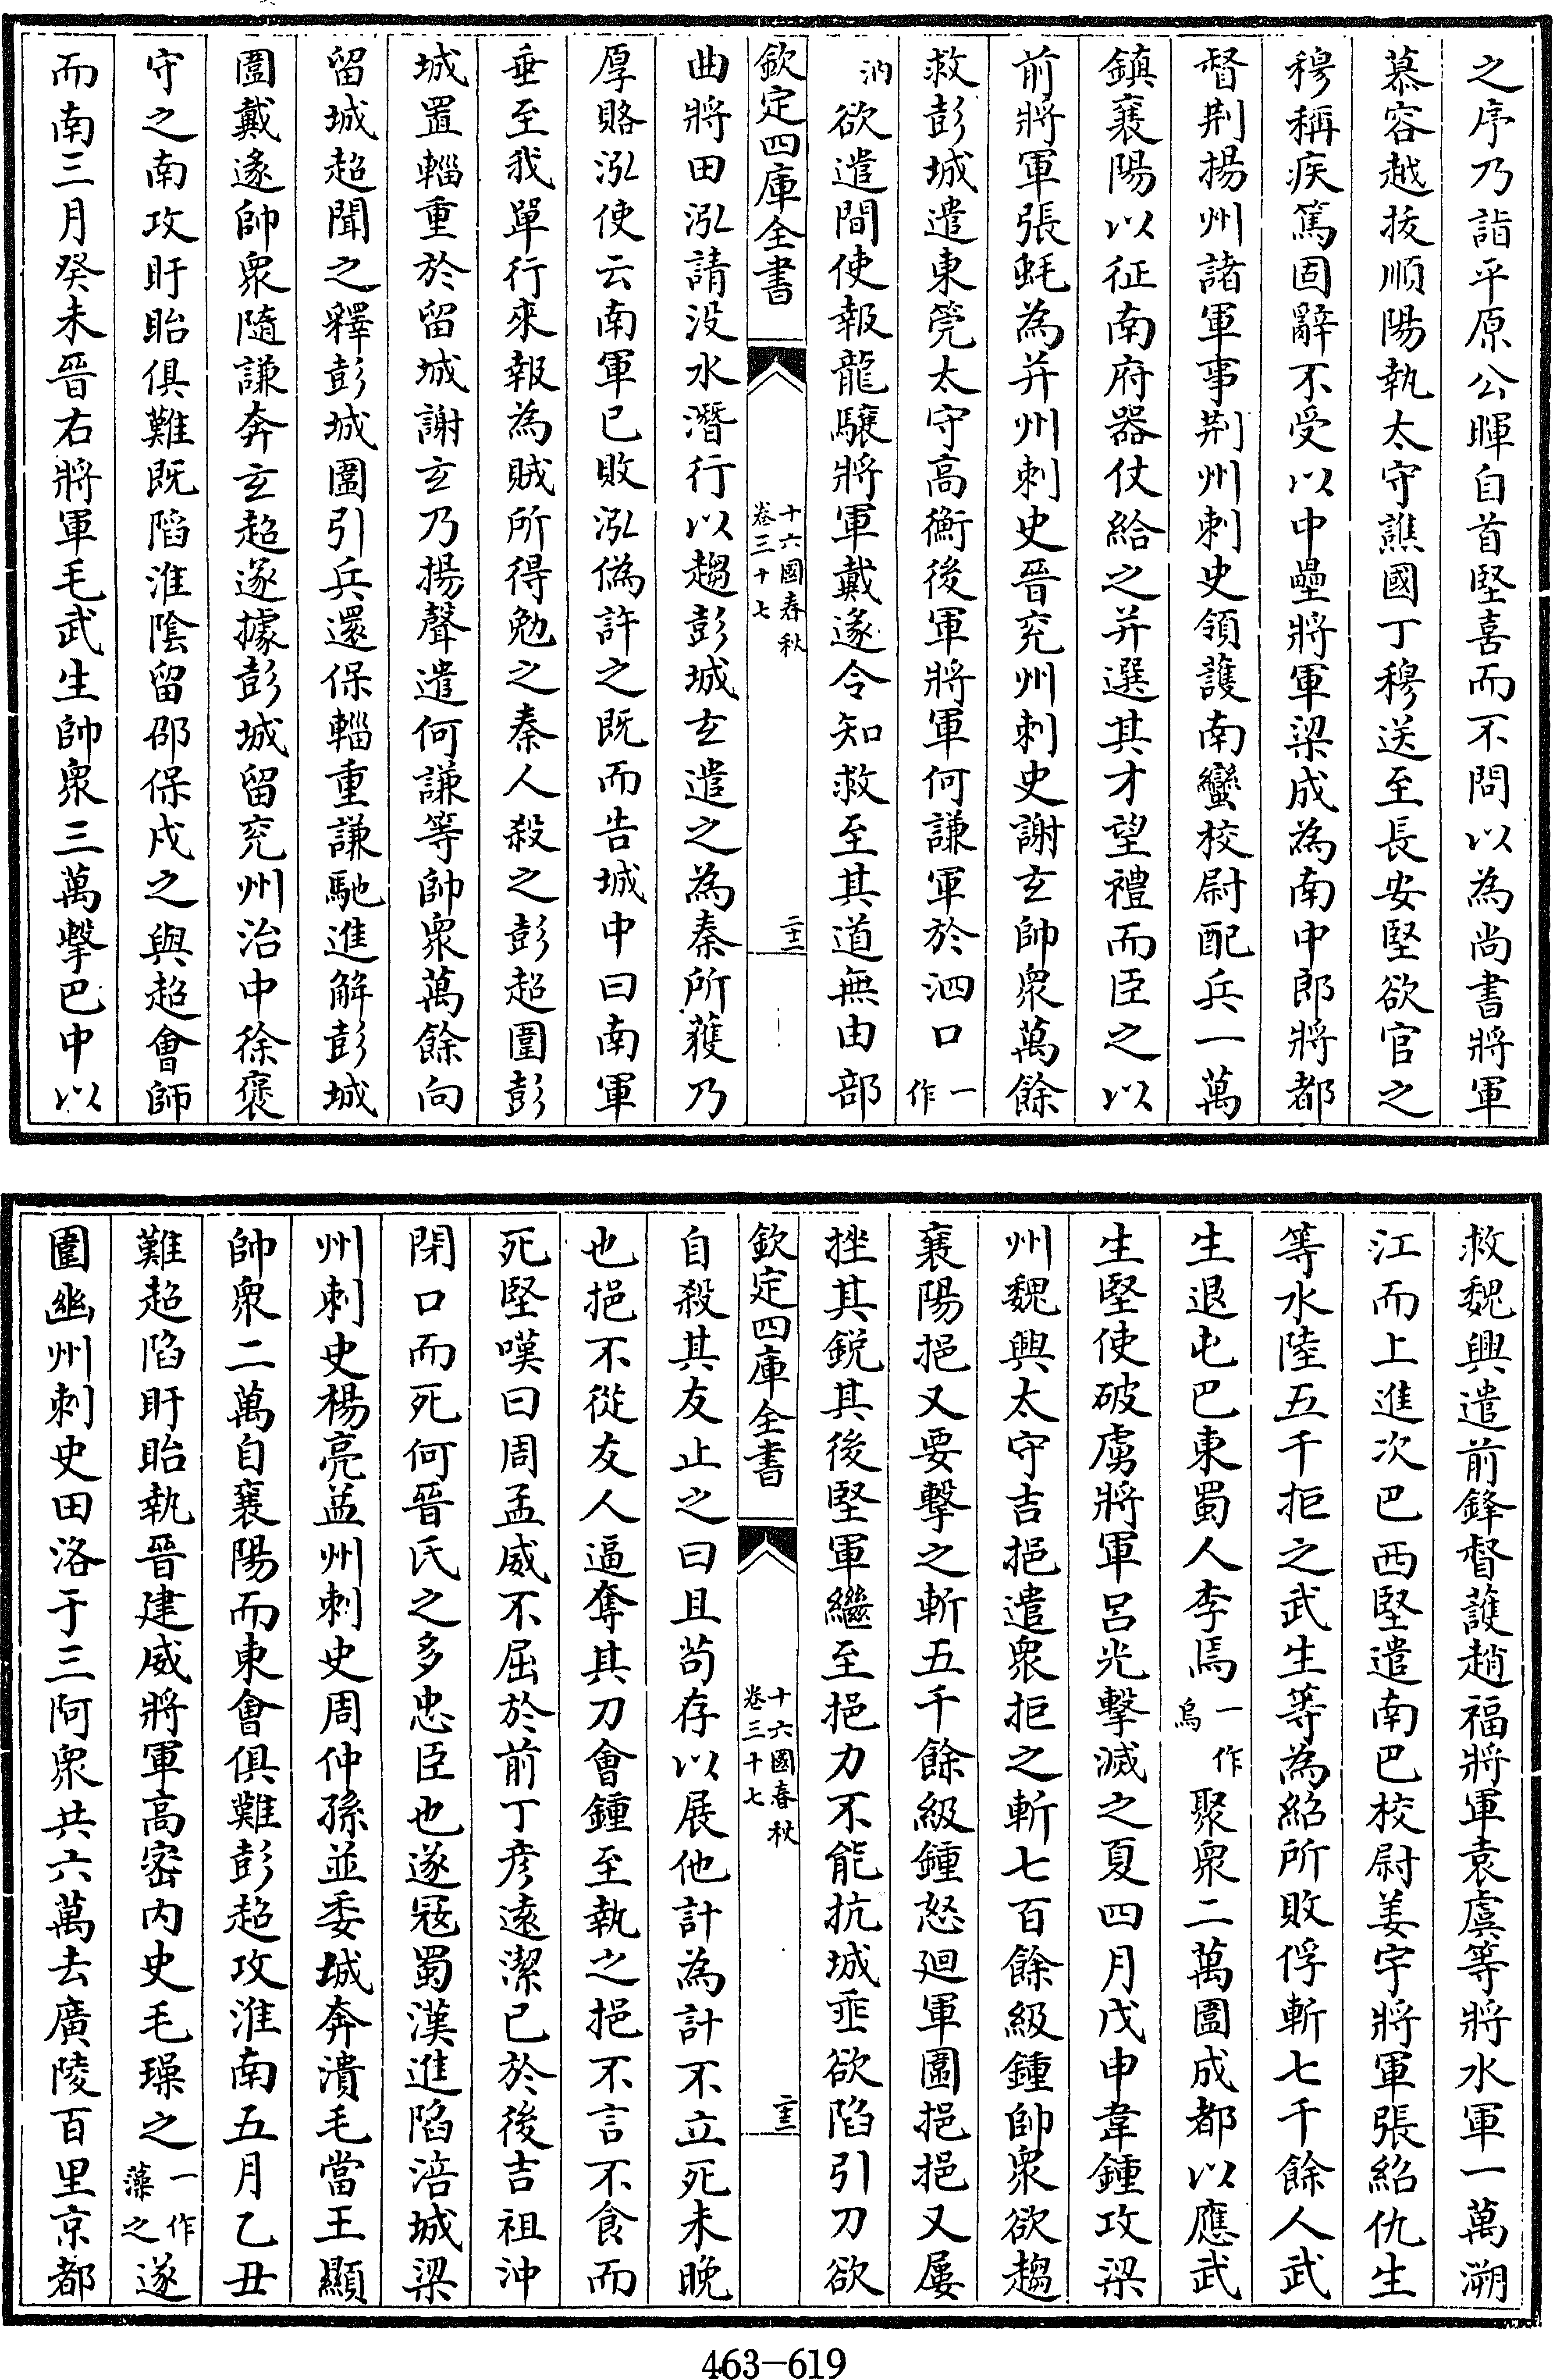 之序乃詣平原公暉自首堅喜而不問以為尚書將軍
慕容越拔順陽執太守譙國丁穆送至長安堅欲官之
穆稱疾篤固辭不受以中壘將軍梁成為南中郎將都
督荆揚州諸軍事荆州刺史領護南蠻校尉配兵一萬
鎮襄陽以征南府器仗給之并選其才望禮而臣之以
前將軍張蚝為并州刺史晉兖州刺史謝玄帥衆萬餘
救彭城遣東筦太守高衡後軍將軍何謙軍於泗口一作
汭欲遣間使報龍驤將軍戴遂令知救至其道無由部
欽定四庫全書
十六國春秋
卷三十七
二十二
曲將田泓請没水潛行以趨彭城玄遣之為秦所獲乃
厚賂泓使云南軍已敗泓偽許之既而告城中曰南軍
垂至我單行來報為賊所得勉之秦人殺之彭超圍彭
城置輜重於留城謝玄乃揚聲遣何謙等帥衆萬餘向
留城超聞之釋彭城圍引兵還保輜重謙馳進解彭城
圍戴遂帥衆隨謙奔玄超遂據彭城留兖州治中徐褒
守之南攻盱眙俱難既陷淮陰留邵保戍之與超會師
而南三月癸未晉右將軍毛武生帥衆三萬擊巴中以
救魏興遣前鋒督護趙福將軍袁虞等將水軍一萬溯
江而上進次巴西堅遣南巴校尉姜宇將軍張紹仇生
等水陸五千拒之武生等為紹所敗俘斬七千餘人武
生退屯巴東蜀人李焉一作烏聚衆二萬圍成都以應武
生堅使破虜將軍呂光擊滅之夏四月戊申韋鍾攻梁
州魏興太守吉挹遣衆拒之斬七百餘級鍾帥衆欲趨
襄陽挹又要擊之斬五千餘級鍾怒迴軍圍挹挹又屢
挫其鋭其後堅軍繼至挹力不能抗城垂欲陷引刀欲
欽定四庫全書
十六國春秋
卷三十七
二十三
自殺其友止之曰且苟存以展他計為計不立死未晚
也挹不從友人逼奪其刀會鍾至執之挹不言不食而
死堅嘆曰周孟威不屈於前丁彦遠潔己於後吉祖沖
閉口而死何晉氏之多忠臣也遂寇蜀漢進陷涪城梁
州刺史楊亮益州刺史周仲孫並委城奔潰毛當王顯
帥衆二萬自襄陽而東會俱難彭超攻淮南五月乙丑
難超陷盱眙執晉建威將軍高密内史毛璪之一作藻之遂
圍幽州刺史田洛于三阿衆共六萬去廣陵百里京都
463-619